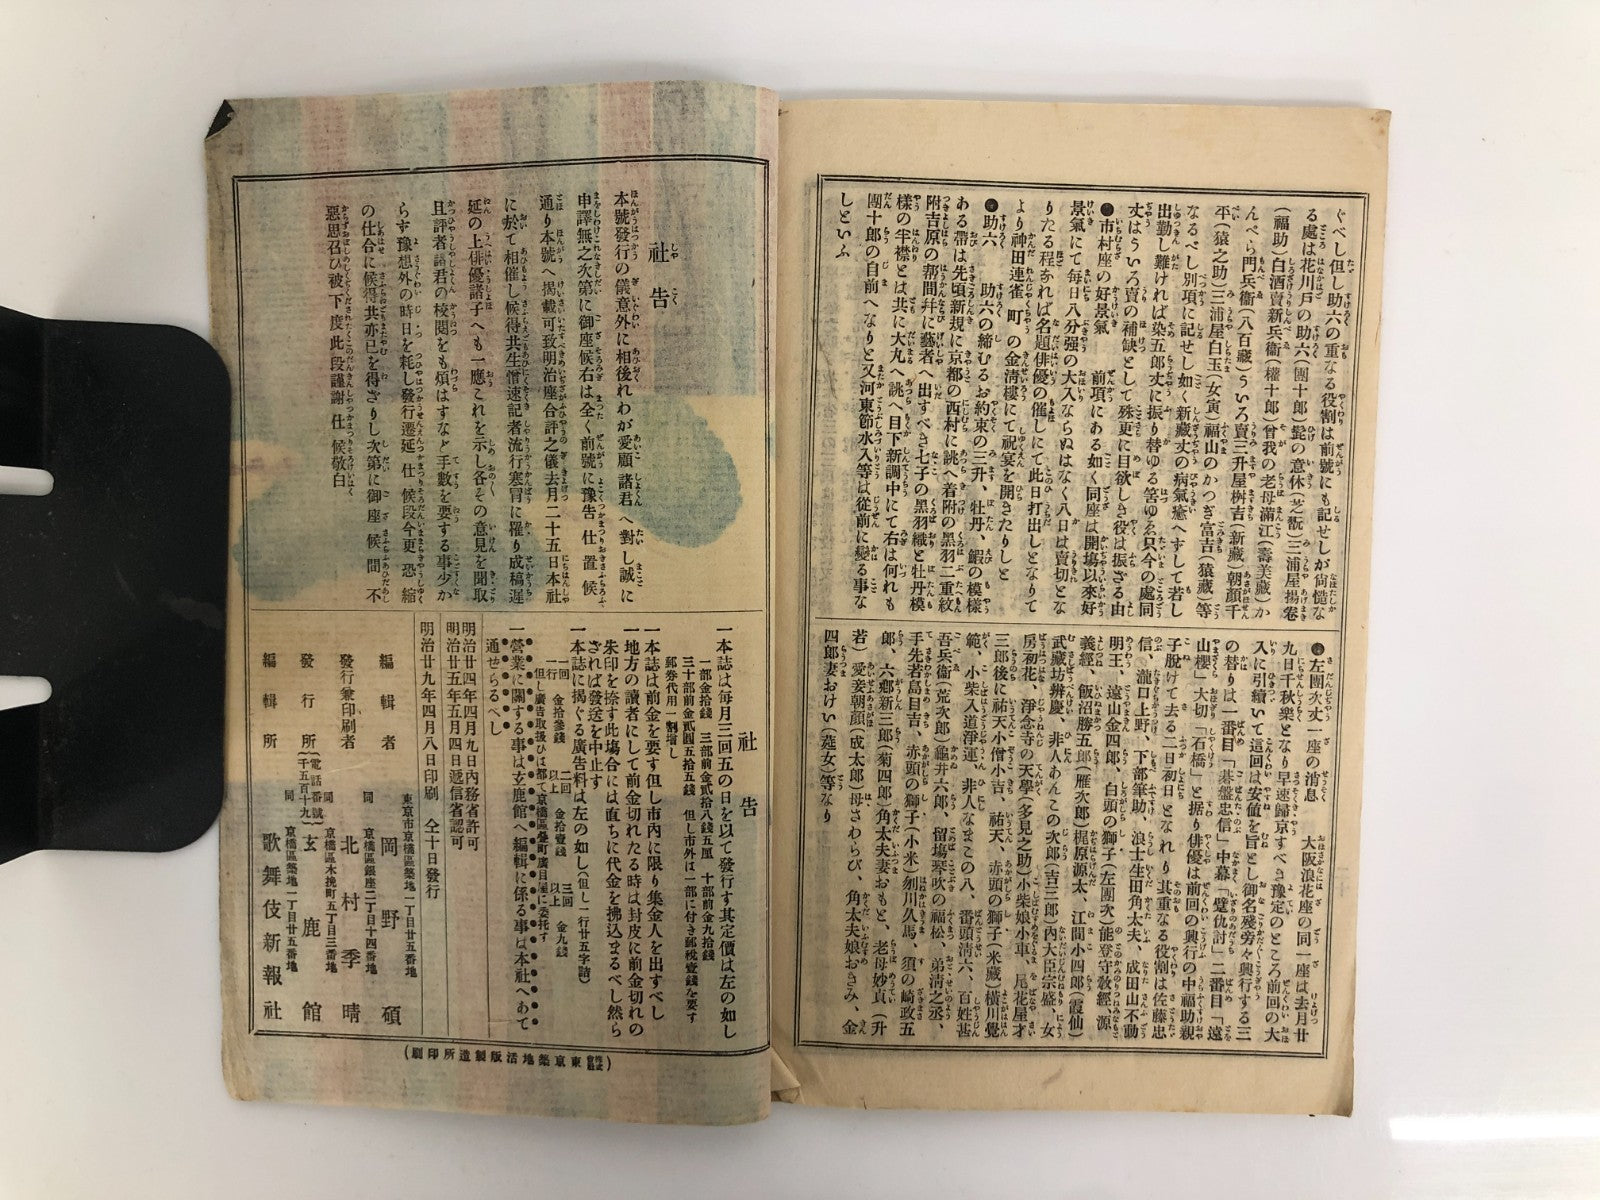 ぐべし但し助六の重なる役割は前號にも記せしが尙慥な
る處は花川戸の助六(團十郎)髭の意休(芝翫)三浦屋揚卷
(福助)白酒賣新兵衞(權十郎)曾我の老母滿江(壽美藏)か
んぺら門兵衞(八百藏)うゐろ賣三升屋桝吉(新藏)朝顏千
平(猿之助)三浦屋白玉(女寅)福山のかつぎ富吉(猿藏)等
なるべし別項に記せし如く新藏丈の病氣癒へずして若し
出勤し難ければ染五郎丈に振り替ゆる筈ゆゑ只今の處同
丈はうゐろ賣の補缺として殊更に目欲しき役は振ざる由
●市村座の好景氣 前項にある如く同座は開塲以來好
景氣にて每日八分强の大入ならぬはなく八日は賣切とな
りたる程なれば名題俳優の催しにて此日打出しとなりて
より神田連雀町の金淸樓にて祝宴を開きたりしと
●助六 助六の締むるお約束の三升、牡丹、鰕の模樣
ある帶は先頃新規に京都の西村に誂へ着附の黑羽二重紋
附吉原の幇間幷に藝者へ出すべき七子の黑羽織と牡丹模
樣の半襟とは共に大丸へ誂へ目下新調中にて右は何れも
團十郎の自前へなりと又河東節水入等は從前に變る事な
しといふ
●左團次丈一座の消息 大阪浪花座の同一座は去月廿
九日千秋樂となり早速歸京すべき豫定のところ前回の大
入に引續いて這回は安値を旨とし御名殘旁々興行する三
の替りは一番目「碁盤忠信」中幕「躄仇討」二番目「遠
山櫻」大切「石橋」と据り俳優は前回の興行の中福助親
子脫けて去る二日初日となれり其重なる役割は佐藤忠
信、瀧口上野、下部筆助、浪士生田角太夫、成田山不動
明王、遠山金四郎、白頭の獅子(左團次)能登守敎經、源
義經、飯沼勝五郎(雁次郎)梶原源太、江間小四郎(霞仙)
武藏坊辨慶、非人あんこの次郎(吉三郎)內大臣宗盛、女
房初花、淨念寺の天學(多見之助)小柴娘小車、尾花屋才
三郎後に祐天小僧小吉、祐天、赤頭の獅子(米藏)橫川覺
範、小柴入道淨運、非人なまこの八、番頭淸六、百姓甚
吾兵衞(荒次郎)龜井六郎、留塲琴吹の福松、弟淸之丞、
手先若島目吉、赤頭の獅子(小米)刎川久馬、須の崎政五
郎、六鄕新三郎(菊四郎)角太夫妻おもと、老母妙貞(升
若)愛妾朝顏(成太郎)母さわらび、角太夫娘おさみ、金
四郎妻おけい(莚女)等なり
社告
本號發行の儀意外に相後れわが愛顧諸君へ對し誠に
申譯無之次第に御座候右は全く前號に豫告仕置候
通り本號へ揭載可致明治座合評之儀去月二十五日本社
に於て相催し候得共生憎速記者流行寒冒に罹り成稿遲
延の上俳優諸子へも一應これを示し各その意見を聞取
且評者諸君の校閱をも煩はすなど手數を要する事少か
らず豫想外の時日を耗し發行遷延仕候段今更恐縮
の仕合に候得共亦已を得ざりし次第に御座候間不
惡思召ひ被下度此段謹謝仕候敬白
社告
一本誌は每月三回五の日を以て發行す其定價は左の如し
一部金拾錢 三部前金貳拾八錢五厘 十部前金九拾錢
三十部前金貳圓五拾五錢 但し市外は一部に付き郵稅壹錢を要す
郵券代用一割增し
一本誌は前金を要す但し市內に限り集金人を出すべし
一地方の讀者にして前金切れたる時は封皮に前金切れの
朱印を捺す此塲合には直ちに代金を拂込まるべし然ら
ざれば發送を中止す
一本誌に揭ぐる廣告料は左の如し(但し一行廿五字詰)
一回一行 金拾參錢 二回以上 金拾壹錢 三回以上 金九錢
但し廣告取扱ひは都て京橋區疊町廣目屋に委托す
一營業に關する事は玄鹿館へ編輯に係る事は本社へあて
通せらるべし
明治廿四年四月九日內務省許可
明治廿五年五月四日遞信省認可
明治廿九年四月八日印刷 仝十日發行
東京市京橋區築地一丁目廿五番地
編輯者 岡野碩
同 京橋區銀座二丁目十四番地
發行兼印刷者 北村季晴
同 京橋區木挽町五丁目三番地
發行所 (電話番號千五百十九) 玄鹿館
同 京橋區築地一丁目廿五番地
編輯所 歌舞伎新報社
(株式會社東京築地活版製造所印刷)